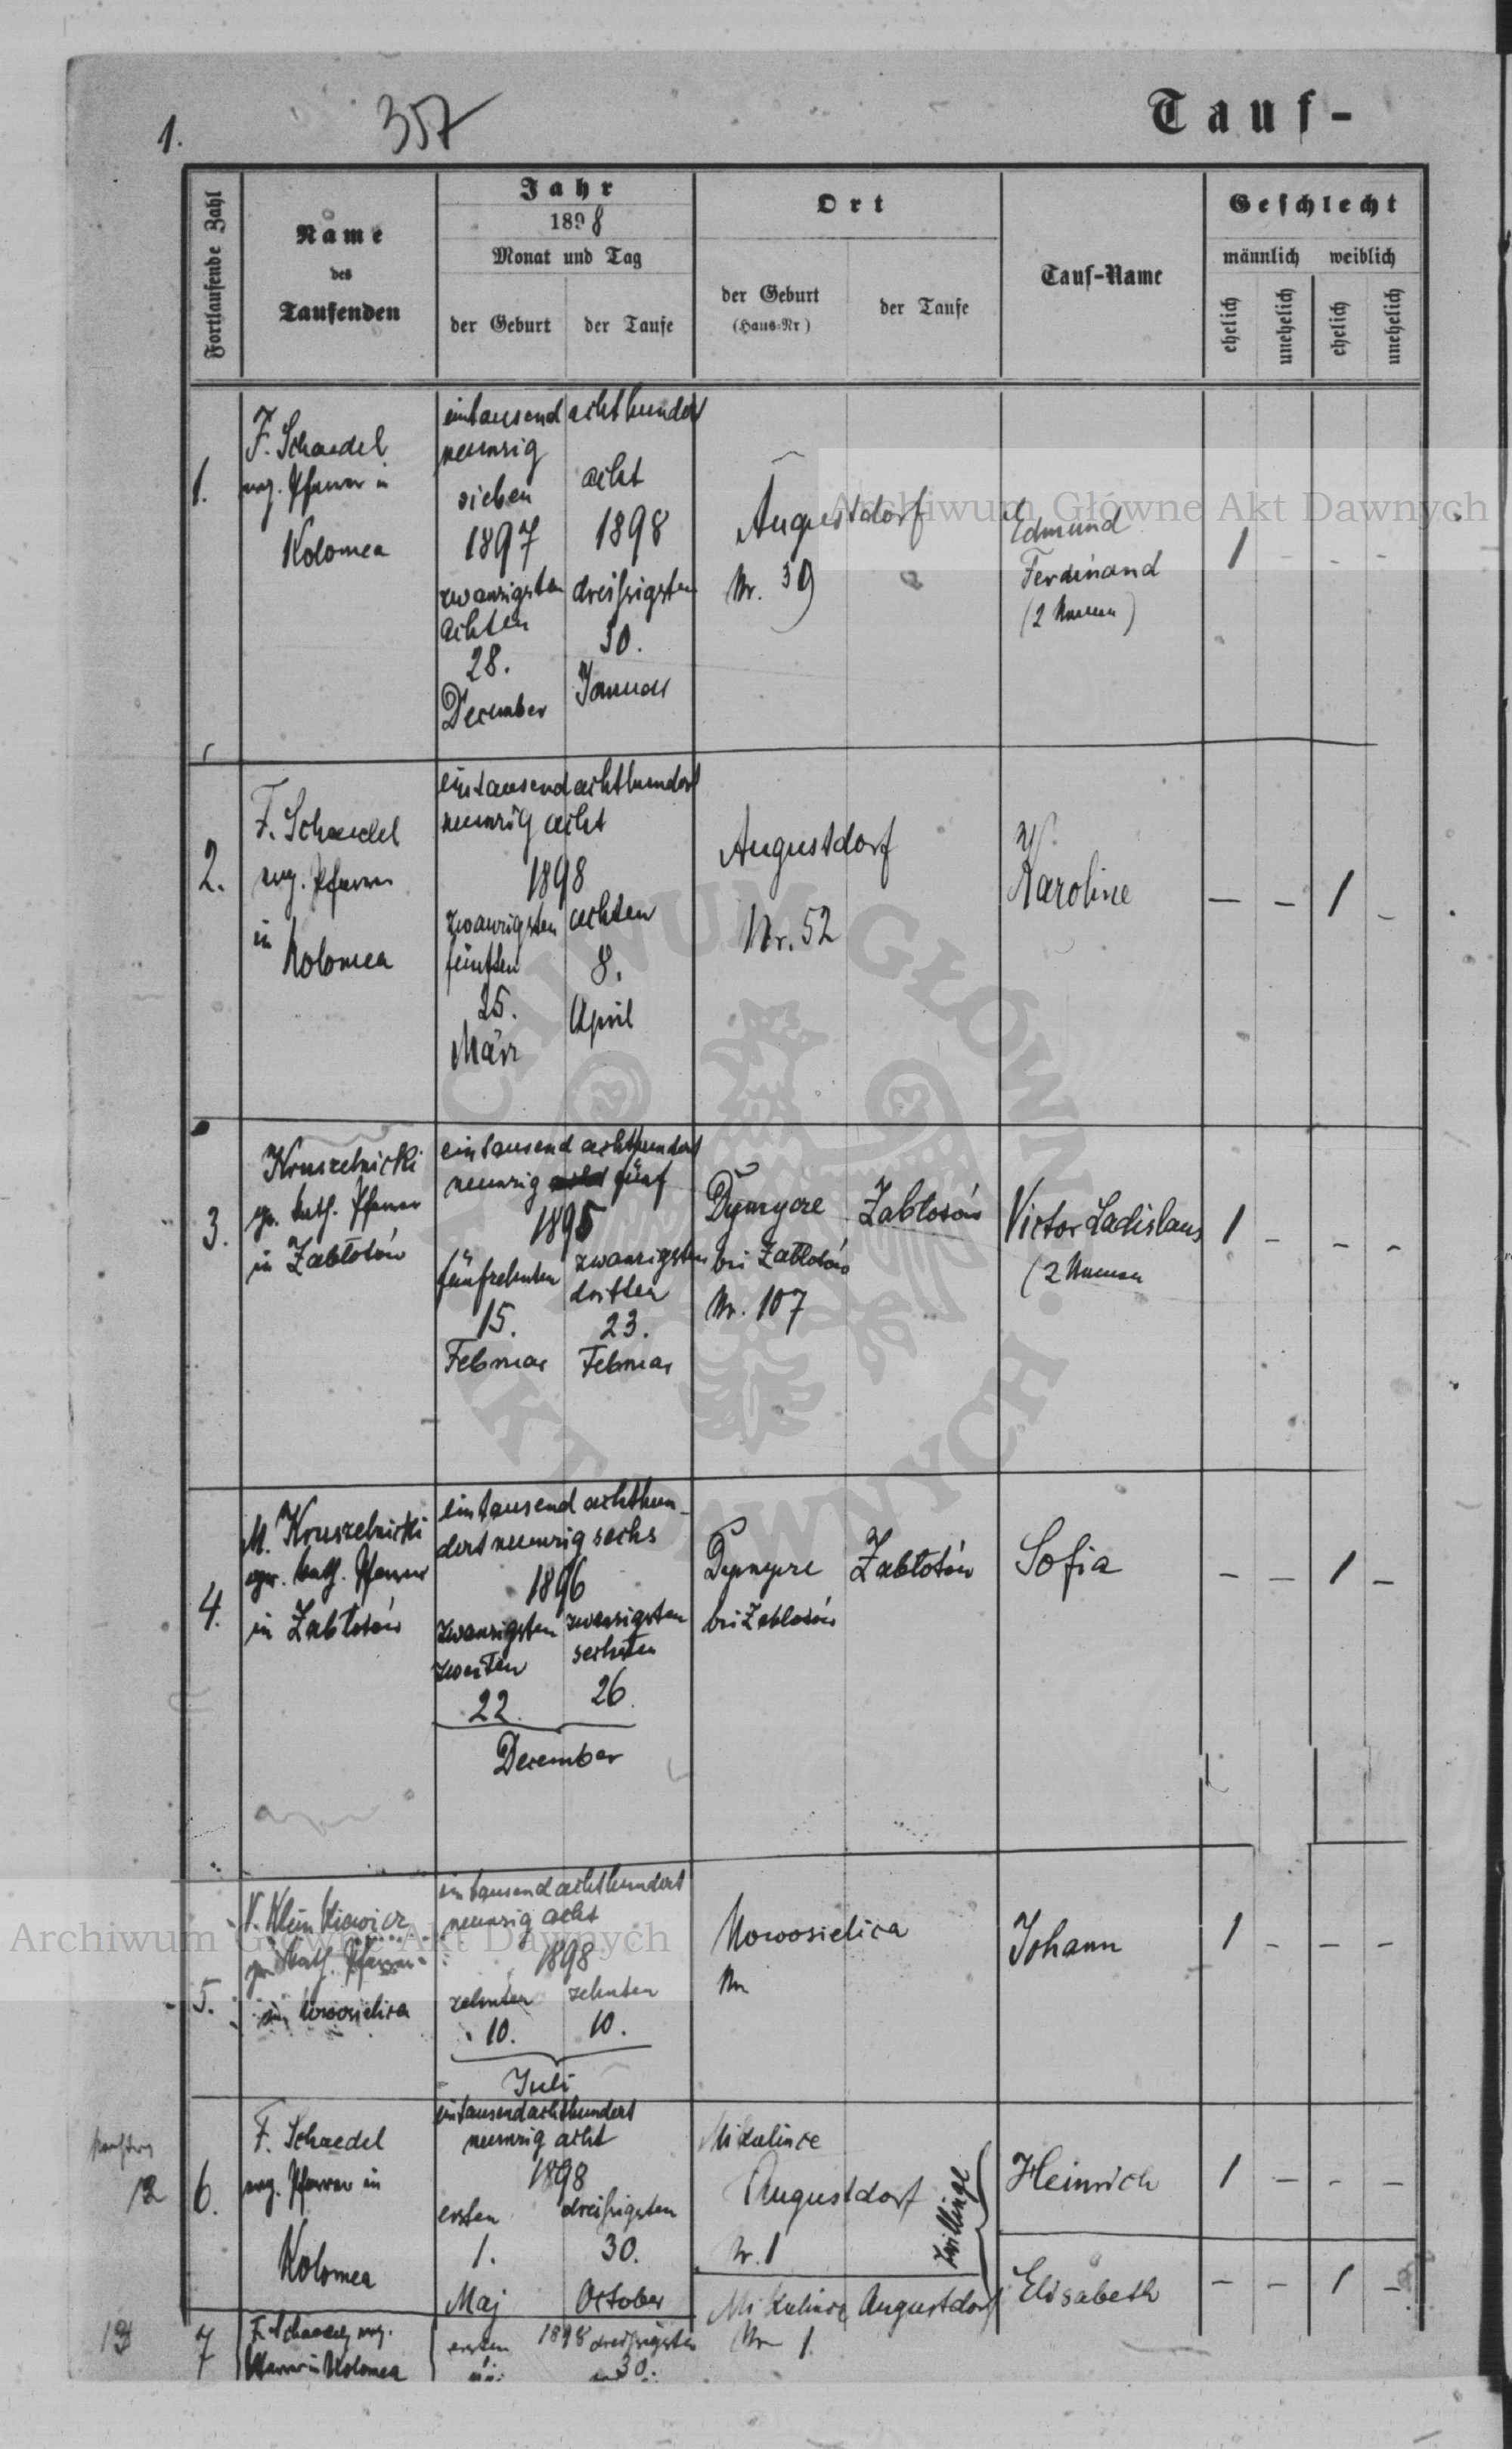 1.
357
Tauf-
Fortlaufende Zahl
Name
des
Taufenden
Jahr
1898
Monat und Tag
der Geburt
der Taufe
Ort
der Geburt
(Haus-Nr)
der Taufe
Tauf-Name
Geschlecht
männlich weiblich
ehelich
unehelich
ehelich
unehelich
1.
F. Schaedel
evg. Pfarrer in
Kolomea
eintausend achthundert
neunzig
sieben
1897
zwanzigsten
achten
28.
December
acht
1898
dreißigsten
30.
Januar
Augustdorf
Nr. 39
Edmund
Ferdinand
(2 Namen)
1 - - -
2.
F. Schaedel
evg. Pfarrer
in
Kolomea
eintausend achthundert
neunzig acht
1898
zwanzigsten
fünften
25.
März
achten
8.
April
Augustdorf
Nr. 52
Karoline
- - 1 -
3.
Kruszelnicki
gr. kath. Pfarrer
in Zabłotów
eintausend achthundert
neunzig fünf
1895
fünfzehnten
15.
Februar
zwanzigsten
dritten
23.
Februar
bei Zabłotów
Nr. 107
Zabłotów
Victor Ladislaus
(2 Namen
1 - - -
4.
M. Kruszelnicki
gr. kath. Pfarrer
in Zabłotów
eintausend achthun-
dert neunzig sechs
1896
zwanzigsten
zweiten
22.
zwanzigsten
sechsten
26.
December
bei Zabłotów
Zabłotów
Sofia
- - 1 -
5.
gr. kath. Pfarrer
in Nowosielica
eintausend achthundert
neunzig acht
1898
zehnten zehnten
10. 10.
Juli
Nowosielica
Nr
Johann
1 - - -
12
6.
F. Schaedel
evg. Pfarrer in
Kolomea
eintausendachthundert
neunzig acht
1898
ersten dreißigsten
1. 30.
Maj October
Mikulince
Augustdorf
Nr. 1
Zwillinge
Heinrich
1 - - -
Elisabeth
- - 1 -
13
7
F. Schaedel evg.
Pfarrer in Kolomea
ersten 1898 dreißigsten
30.
Mikulince Augustdorf
Nr 1.
Archiwum Główne Akt Dawnych
Archiwum Główne Akt Dawnych
ARCHIWUM GŁÓWNE AKT DAWNYCH